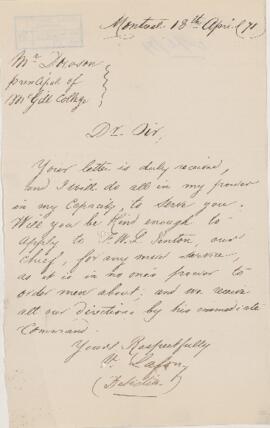 Montreal 18th April /71
Mr Dowson
principal of
McGill College
Dr Sir,
Your letter is duly receive,
and I will do all in my power
in my Capacity, to serve you.
Will you be Kind enough to
apply to F. W. L. Penton, our
chief, for any men service,
as it is in no one's power to
order men about; and we receive
all our directions by his immediate
Command.
Yours Respectfully
Lafon
(Detective)